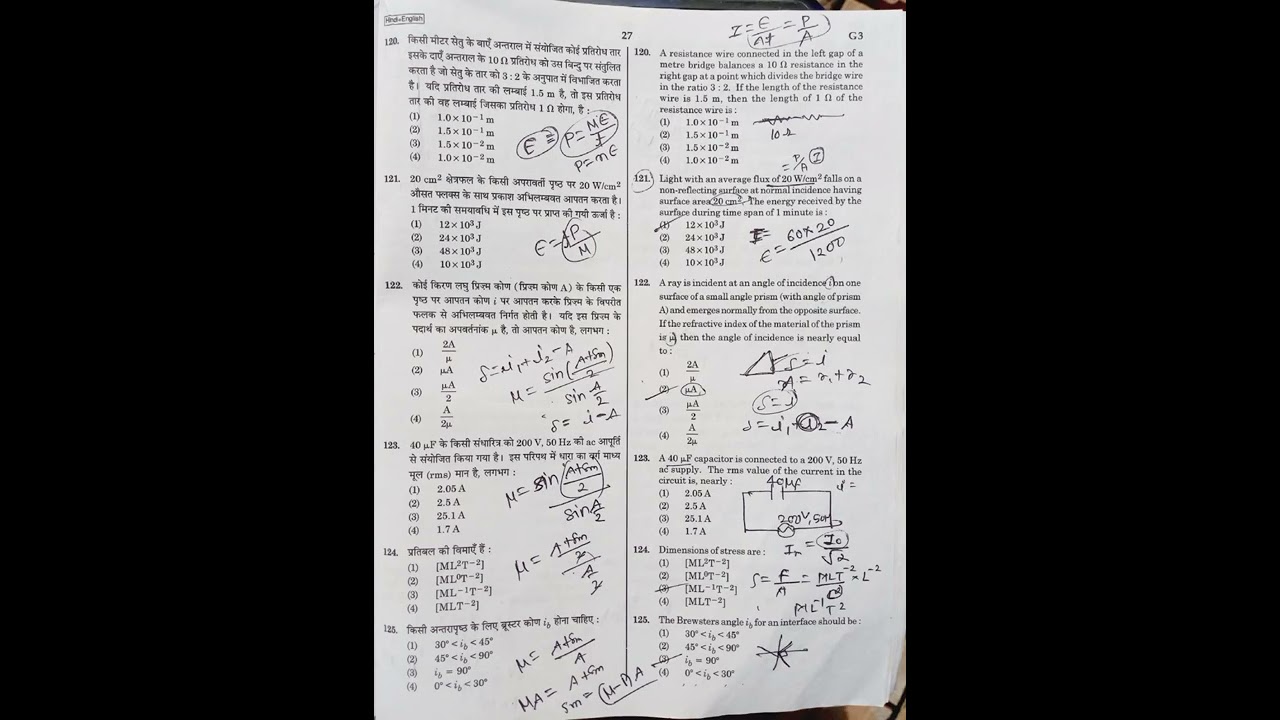 Hindi+English
27
G3
120. किसी मीटर सेतु के बाएँ अन्तराल में संयोजित कोई प्रतिरोध तार
इसके दाएँ अन्तराल के 10 Ω प्रतिरोध को उस बिन्दु पर संतुलित
करता है जो सेतु के तार को 3 : 2 के अनुपात में विभाजित करता
है। यदि प्रतिरोध तार की लम्बाई 1.5 m है, तो इस प्रतिरोध
तार की वह लम्बाई जिसका प्रतिरोध 1 Ω होगा, है :
(1) 1.0 × 10⁻¹ m
(2) 1.5 × 10⁻¹ m
(3) 1.5 × 10⁻² m
(4) 1.0 × 10⁻² m
P = ME/I
P = mE
121. 20 cm² क्षेत्रफल के किसी अपरावर्ती पृष्ठ पर 20 W/cm²
औसत फ्लक्स के साथ प्रकाश अभिलम्बवत आपतन करता है।
1 मिनट की समयावधि में इस पृष्ठ पर प्राप्त की गयी ऊर्जा है :
(1) 12 × 10³ J
(2) 24 × 10³ J
(3) 48 × 10³ J
(4) 10 × 10³ J
122. कोई किरण लघु प्रिज़्म कोण (प्रिज़्म कोण A) के किसी एक
पृष्ठ पर आपतन कोण i पर आपतन करके प्रिज़्म के विपरीत
फलक से अभिलम्बवत निर्गत होती है। यदि इस प्रिज़्म के
पदार्थ का अपवर्तनांक μ है, तो आपतन कोण है, लगभग :
(1) 2A/μ
(2) μA
(3) μA/2
(4) A/2μ
μ = sin(A+δm/2)/sin A/2
δ = i − A
123. 40 μF के किसी संधारित्र को 200 V, 50 Hz की ac आपूर्ति
से संयोजित किया गया है। इस परिपथ में धारा का वर्ग माध्य
मूल (rms) मान है, लगभग :
(1) 2.05 A
(2) 2.5 A
(3) 25.1 A
(4) 1.7 A
μ = sin(A+δm/2)/sin A/2
124. प्रतिबल की विमाएँ हैं :
(1) [ML²T⁻²]
(2) [ML⁰T⁻²]
(3) [ML⁻¹T⁻²]
(4) [MLT⁻²]
125. किसी अन्तरापृष्ठ के लिए ब्रूस्टर कोण i_b होना चाहिए :
(1) 30° < i_b < 45°
(2) 45° < i_b < 90°
(3) i_b = 90°
(4) 0° < i_b < 30°
μ = A+δm/A
MA = A+δm
δm = (μ−1)A
I = E/At = P/A
120. A resistance wire connected in the left gap of a
metre bridge balances a 10 Ω resistance in the
right gap at a point which divides the bridge wire
in the ratio 3 : 2. If the length of the resistance
wire is 1.5 m, then the length of 1 Ω of the
resistance wire is :
(1) 1.0 × 10⁻¹ m
(2) 1.5 × 10⁻¹ m
(3) 1.5 × 10⁻² m
(4) 1.0 × 10⁻² m
= P/A I
121. Light with an average flux of 20 W/cm² falls on a
non-reflecting surface at normal incidence having
surface area 20 cm². The energy received by the
surface during time span of 1 minute is :
(1) 12 × 10³ J
(2) 24 × 10³ J
(3) 48 × 10³ J
(4) 10 × 10³ J
E = 60×20/1200
122. A ray is incident at an angle of incidence i on one
surface of a small angle prism (with angle of prism
A) and emerges normally from the opposite surface.
If the refractive index of the material of the prism
is μ, then the angle of incidence is nearly equal
to :
(1) 2A/μ
(2) μA
(3) μA/2
(4) A/2μ
δ = i
A = r₁+r₂
δ = i
δ = i₁+i₂−A
123. A 40 μF capacitor is connected to a 200 V, 50 Hz
ac supply. The rms value of the current in the
circuit is, nearly :
(1) 2.05 A
(2) 2.5 A
(3) 25.1 A
(4) 1.7 A
40μF
i =
124. Dimensions of stress are :
(1) [ML²T⁻²]
(2) [ML⁰T⁻²]
(3) [ML⁻¹T⁻²]
(4) [MLT⁻²]
I₀/√2
S = F/A = MLT⁻² × L⁻²
125. The Brewsters angle i_b for an interface should be :
(1) 30° < i_b < 45°
(2) 45° < i_b < 90°
(3) i_b = 90°
(4) 0° < i_b < 30°